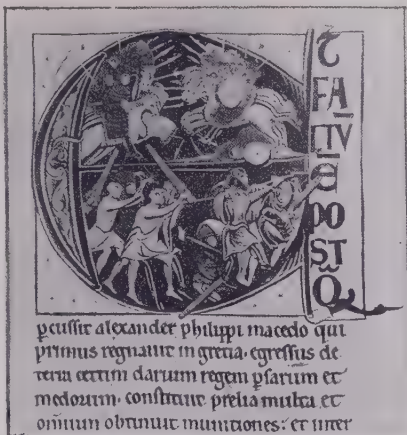 ET
FA
CTU
E
PO
ST
Q
pcussit alexander philippi macedo qui
primus regnauit in grecia. egressus de
terra cettim darium regem psarum et
medorum. constituit prelia multa et
omnium obtinuit munitiones: et inter